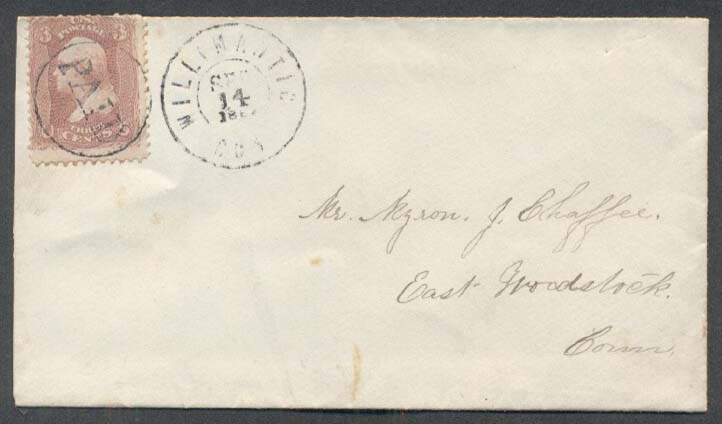 3 U.S. POSTAGE 3
THREE
CENTS
PAID
WILLIMANTIC
14
CON
Mr. Myron. J. Chaffee.
East Woodstock.
Conn.